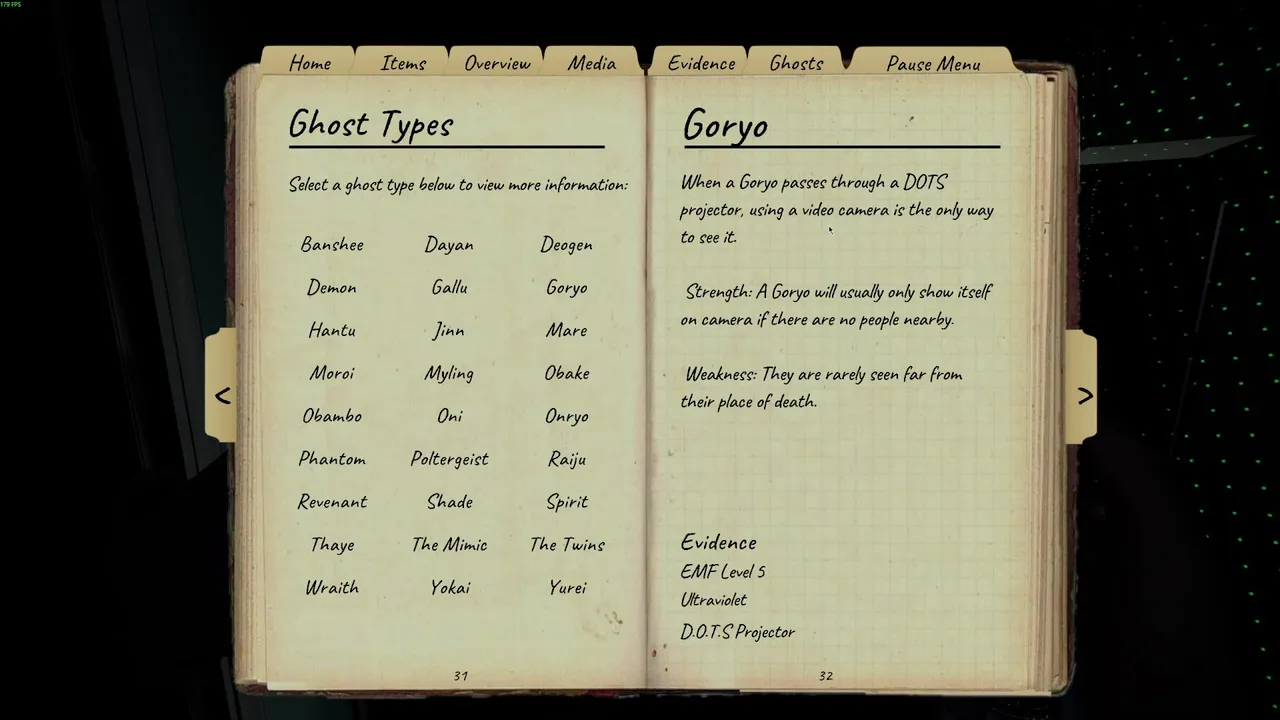 179 FPS
Home Items Overview Media Evidence Ghosts Pause Menu
Ghost Types
Select a ghost type below to view more information:
Banshee Dayan Deogen
Demon Gallu Goryo
Hantu Jinn Mare
Moroi Myling Obake
Obambo Oni Onryo
Phantom Poltergeist Raiju
Revenant Shade Spirit
Thaye The Mimic The Twins
Wraith Yokai Yurei
<
31
Goryo
When a Goryo passes through a DOTS
projector, using a video camera is the only way
to see it.
Strength: A Goryo will usually only show itself
on camera if there are no people nearby.
Weakness: They are rarely seen far from
their place of death.
>
Evidence
EMF Level 5
Ultraviolet
D.O.T.S Projector
32